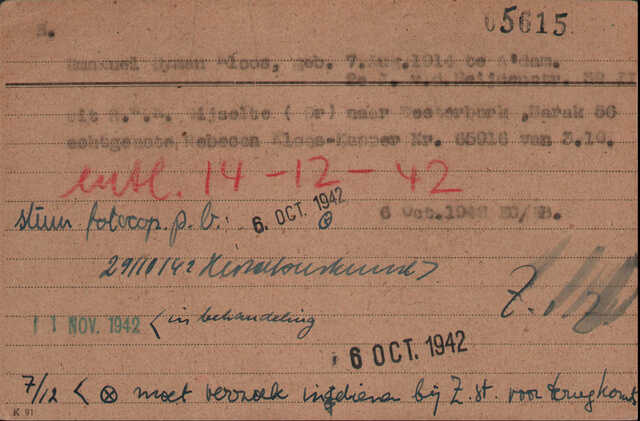 H.
05615
Emanuel Hyman Kloos, geb. 7.Aug.1914 te A'dam.
2e J. v.d.Heijdenstr. 32 II
uit R.W.K. Wijselte ( Dr) naar Westerbork ,Barak 56
echtgenote,Rebecca Kloos-Kapper Nr. 65916 van 3.10.
entl. 14-12-42
6 OCT. 1942
6 Oct.1942
stuur fotocop. p. b.
29/10/42
11 NOV. 1942 < in behandeling
Z.
6 OCT. 1942
7/12 < ⊗ moet verzoek indienen bij Z. st. voor terugkomst
K 91